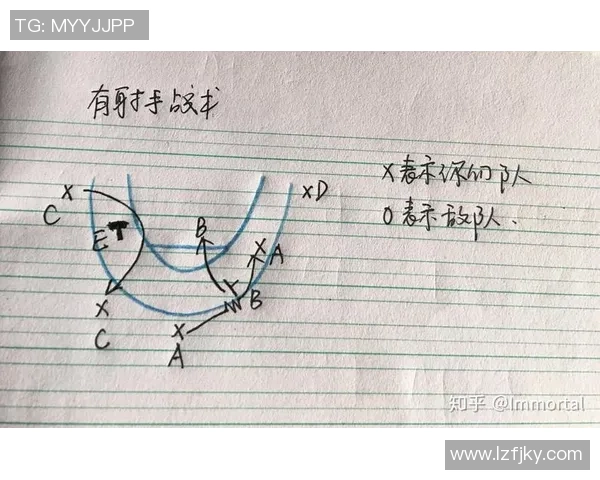 TG: MYYJJPP
有射手战术
X表示你们队
O表示敌队.
X
C
E
B
X
A
XD
B
X
C
X
A
知乎 @Immortal
www.lzfjky.com